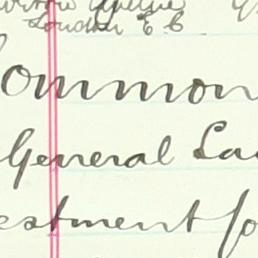 London E C
ommon
General La
estment fo